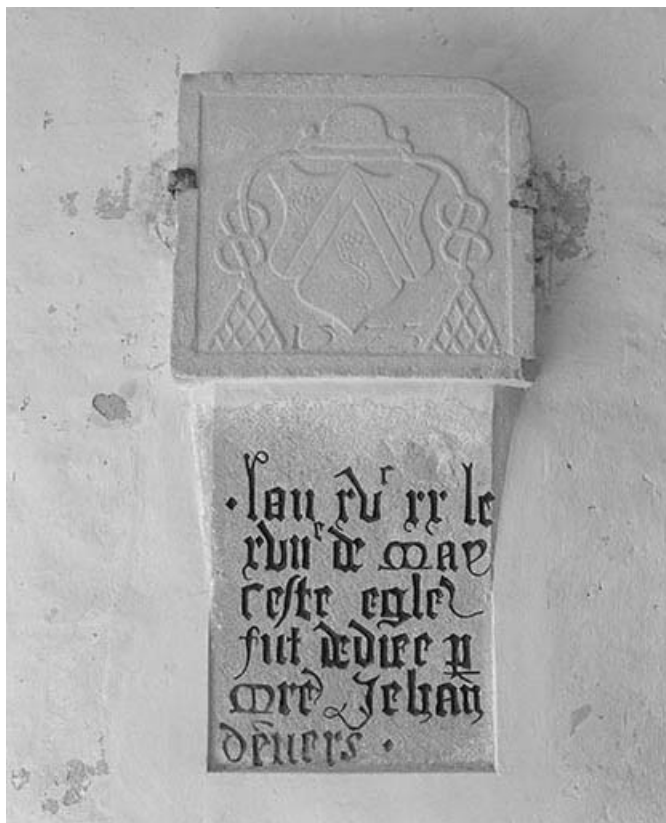 1573
· lan xvᶜ xx le
xvııᵉ de may
ceste egle
fut dediee p̱
mre Jehan
deners ·